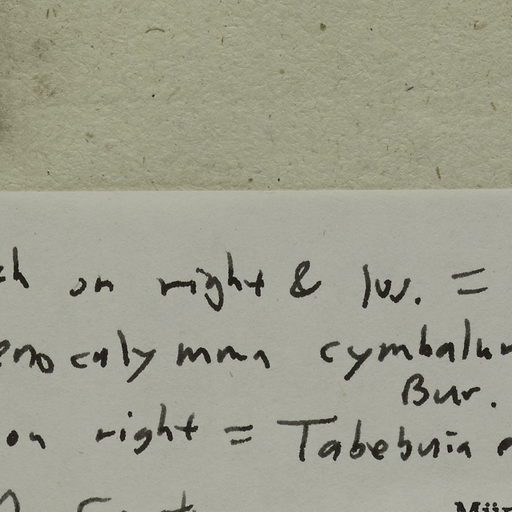 on right & lvs. =
enocalymma cymbalum
Bur.
on right = Tabebuia